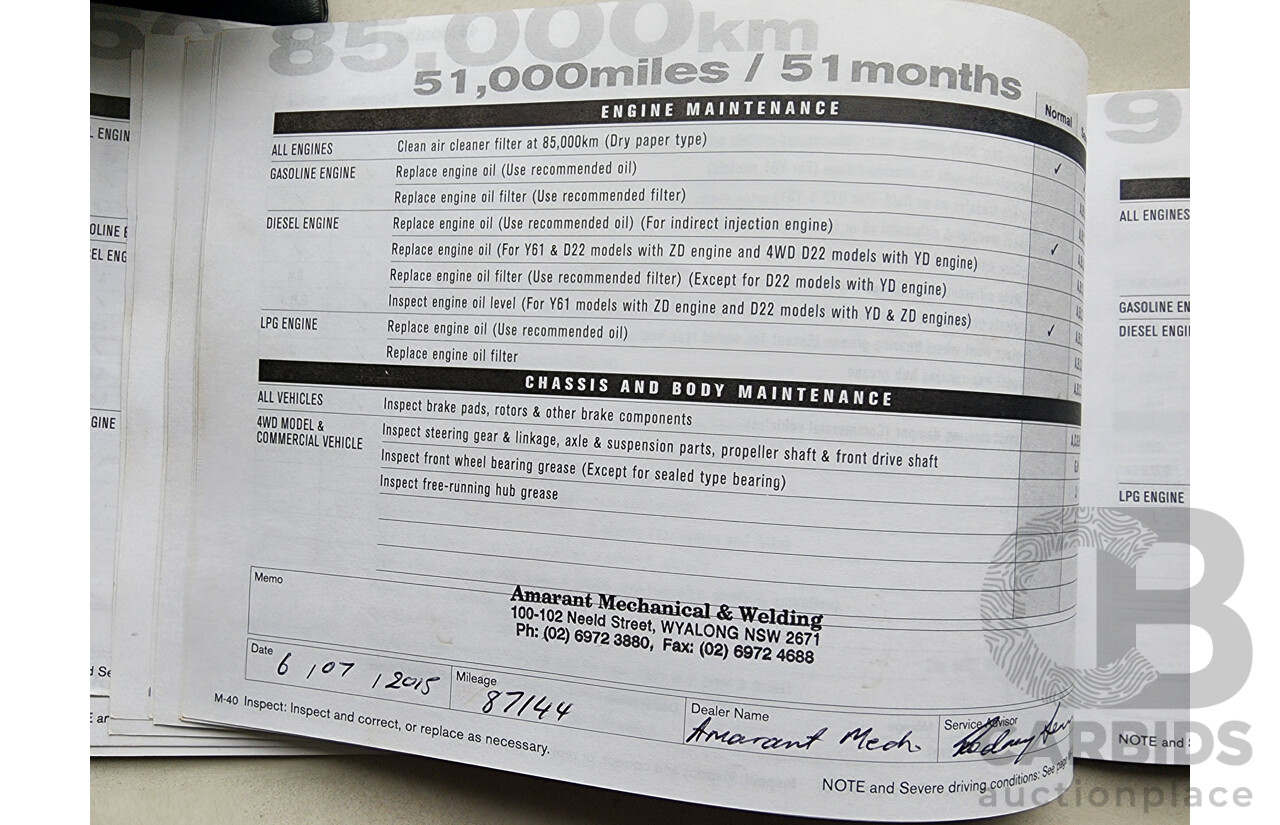 85,000km
51,000miles / 51months
ENGINE MAINTENANCE
Normal
ALL ENGINES Clean air cleaner filter at 85,000km (Dry paper type)
GASOLINE ENGINE Replace engine oil (Use recommended oil) ✓
Replace engine oil filter (Use recommended filter)
DIESEL ENGINE Replace engine oil (Use recommended oil) (For indirect injection engine)
Replace engine oil (For Y61 & D22 models with ZD engine and 4WD D22 models with YD engine) ✓
Replace engine oil filter (Use recommended filter) (Except for D22 models with YD engine)
Inspect engine oil level (For Y61 models with ZD engine and D22 models with YD & ZD engines)
LPG ENGINE Replace engine oil (Use recommended oil) ✓
Replace engine oil filter
CHASSIS AND BODY MAINTENANCE
ALL VEHICLES Inspect brake pads, rotors & other brake components
4WD MODEL &
COMMERCIAL VEHICLE Inspect steering gear & linkage, axle & suspension parts, propeller shaft & front drive shaft
Inspect front wheel bearing grease (Except for sealed type bearing)
Inspect free-running hub grease
Memo
Amarant Mechanical & Welding
100-102 Neeld Street, WYALONG NSW 2671
Ph: (02) 6972 3880, Fax: (02) 6972 4688
Date 6 / 07 / 2015
Mileage 87144
Dealer Name Amarant Mech.
Service Advisor
M-40 Inspect: Inspect and correct, or replace as necessary.
NOTE and Severe driving conditions: See page
9
ALL ENGINES
GASOLINE EN
DIESEL ENGI
LPG ENGINE
NOTE and
CARBIDS
auctionplace